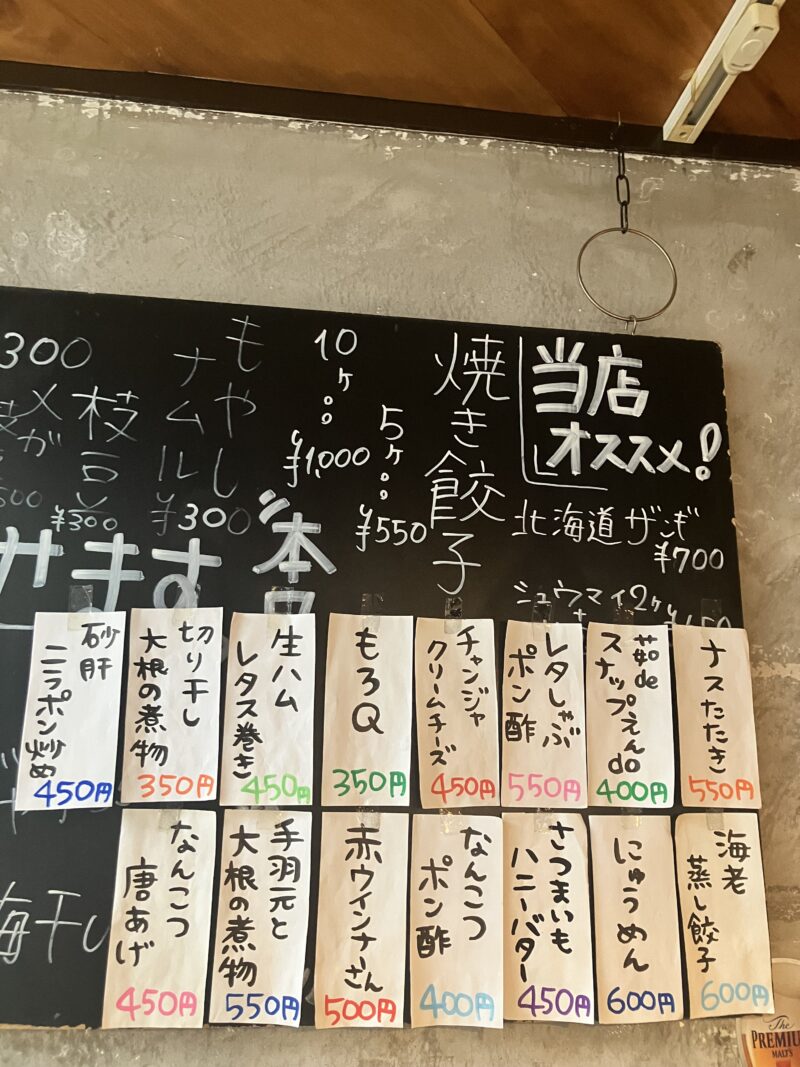 当店
オススメ!
北海道ザンギ
¥700
シュウマイ2ケ
焼き餃子
5ケ
¥550
10ケ
¥1,000
もやし
ナムル
¥300
枝豆
¥300
メガ
300
ます
ナスたたき
550円
茹de
スナップえんdo
400円
レタしゃぶ
ポン酢
550円
チャンジャ
クリームチーズ
450円
もろQ
350円
生ハム
レタス巻き
450円
切り干し
大根の煮物
350円
砂肝
ニラポン炒め
450円
海老
蒸し餃子
600円
にゅうめん
600円
さつまいも
ハニーバター
450円
なんこつ
ポン酢
400円
赤ウインナーさん
500円
手羽元と
大根の煮物
550円
なんこつ
唐あげ
450円
梅干し
The
PREMIU
MALT'S